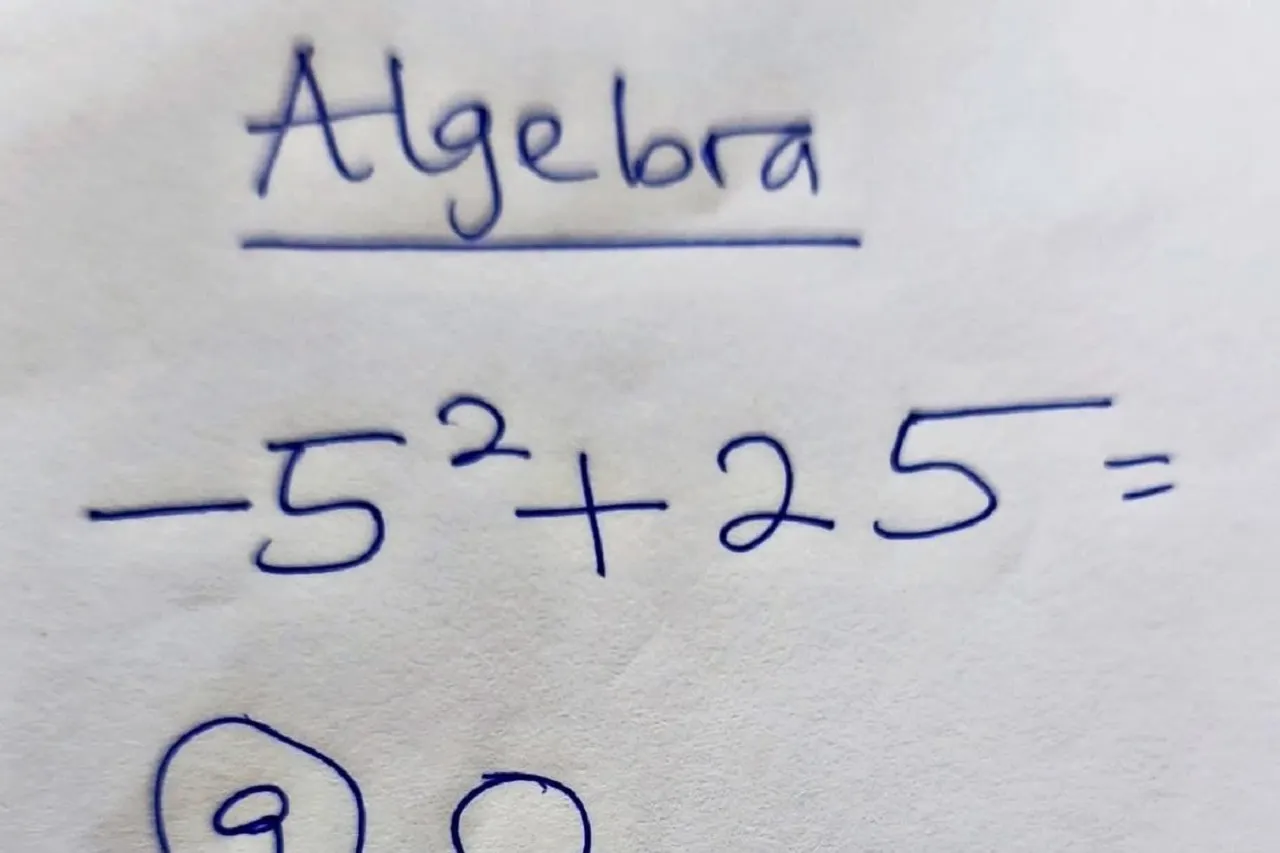 Algebra
-5²+25=
a 0